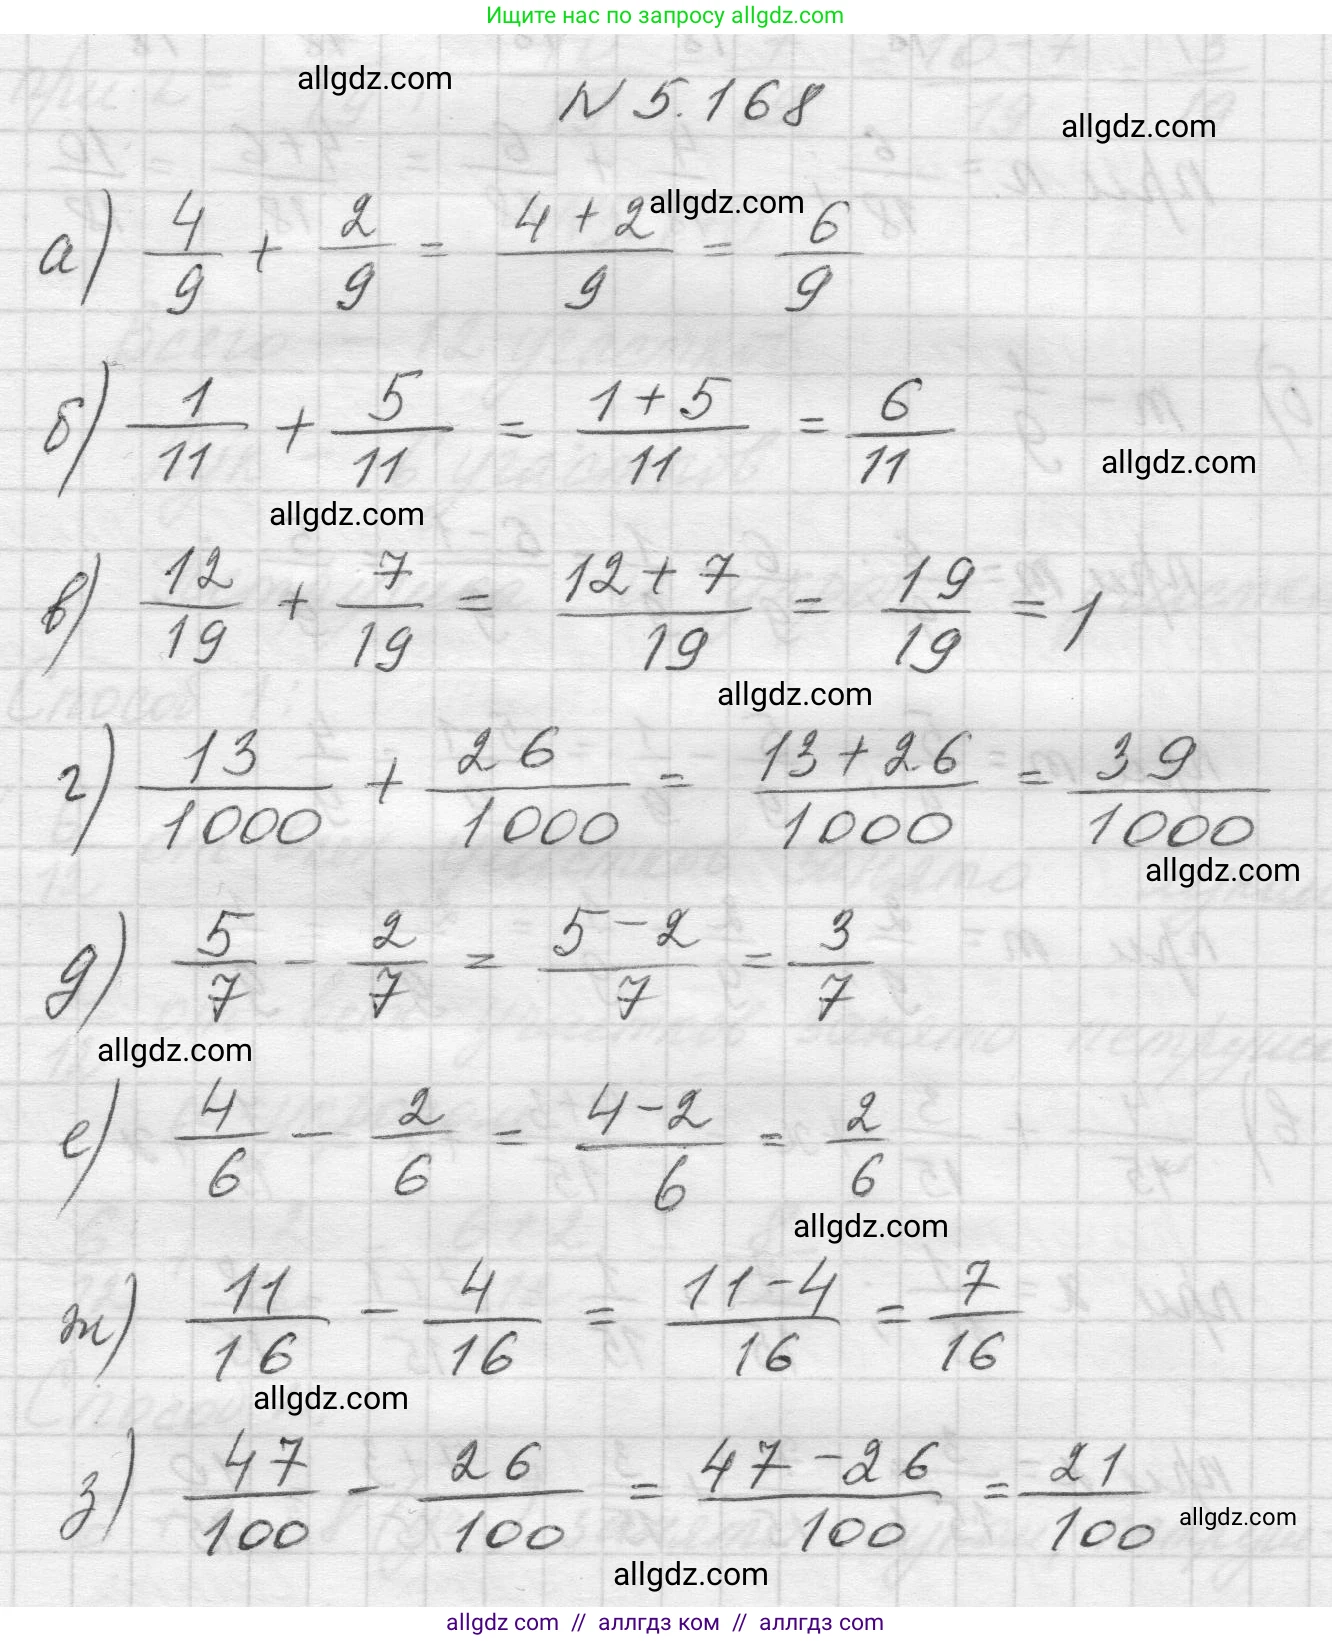 Ищите нас по запросу allgdz.com
allgdz.com
N 5.168
allgdz.com
а) 4/9 + 2/9 = (4 + 2)/9 = 6/9
allgdz.com
б) 1/11 + 5/11 = (1 + 5)/11 = 6/11
allgdz.com
allgdz.com
в) 12/19 + 7/19 = (12 + 7)/19 = 19/19 = 1
allgdz.com
г) 13/1000 + 26/1000 = (13 + 26)/1000 = 39/1000
allgdz.com
д) 5/7 - 2/7 = (5 - 2)/7 = 3/7
allgdz.com
е) 4/6 - 2/6 = (4 - 2)/6 = 2/6
allgdz.com
ж) 11/16 - 4/16 = (11 - 4)/16 = 7/16
allgdz.com
з) 47/100 - 26/100 = (47 - 26)/100 = 21/100
allgdz.com
allgdz.com
allgdz com // аллгдз ком // аллгдз com